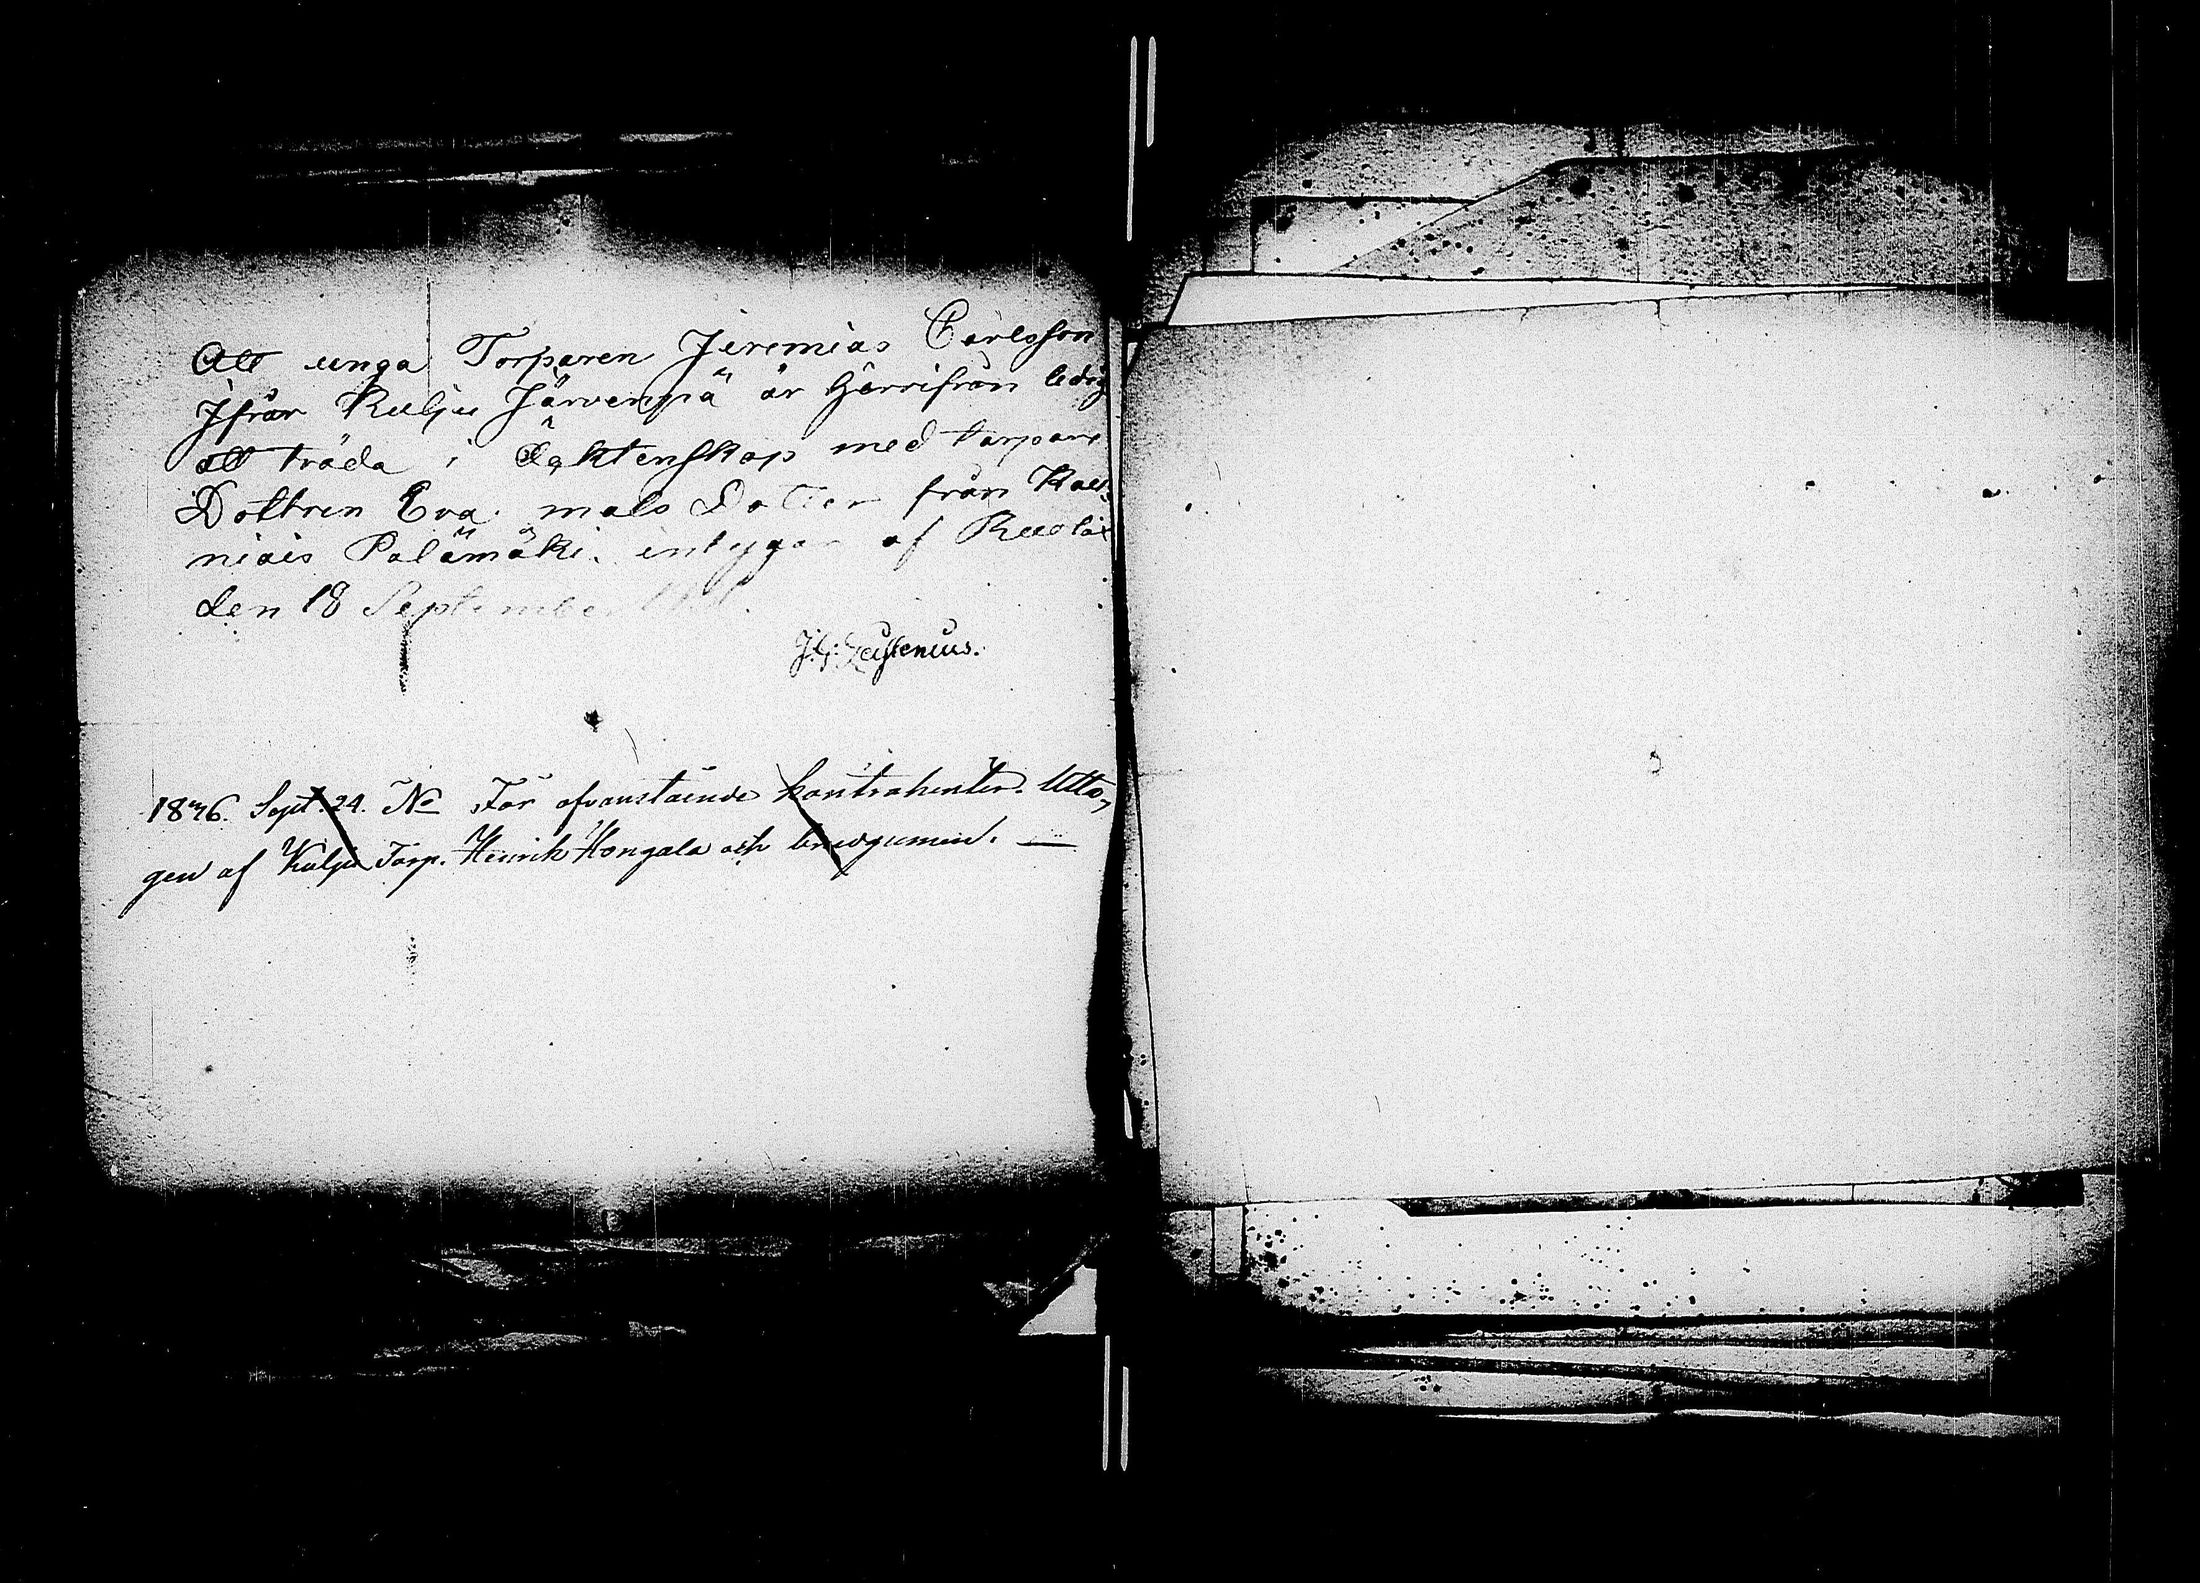 Att unga Torparen Jeremias Carlsson
Ifrån Kulju Järvenpä är Härrifrån ledig
att träda i Ecktenskap med torpare
Dottren Eva mats Dotter från Kau-
niais Palämäki. intygar af Ruolax
den 18 September
1876. Sept. 24. No För ofvanstående kontrahenter. Utta,
gen af Kulju Torp. Henrik Hongala och brudgumen. —